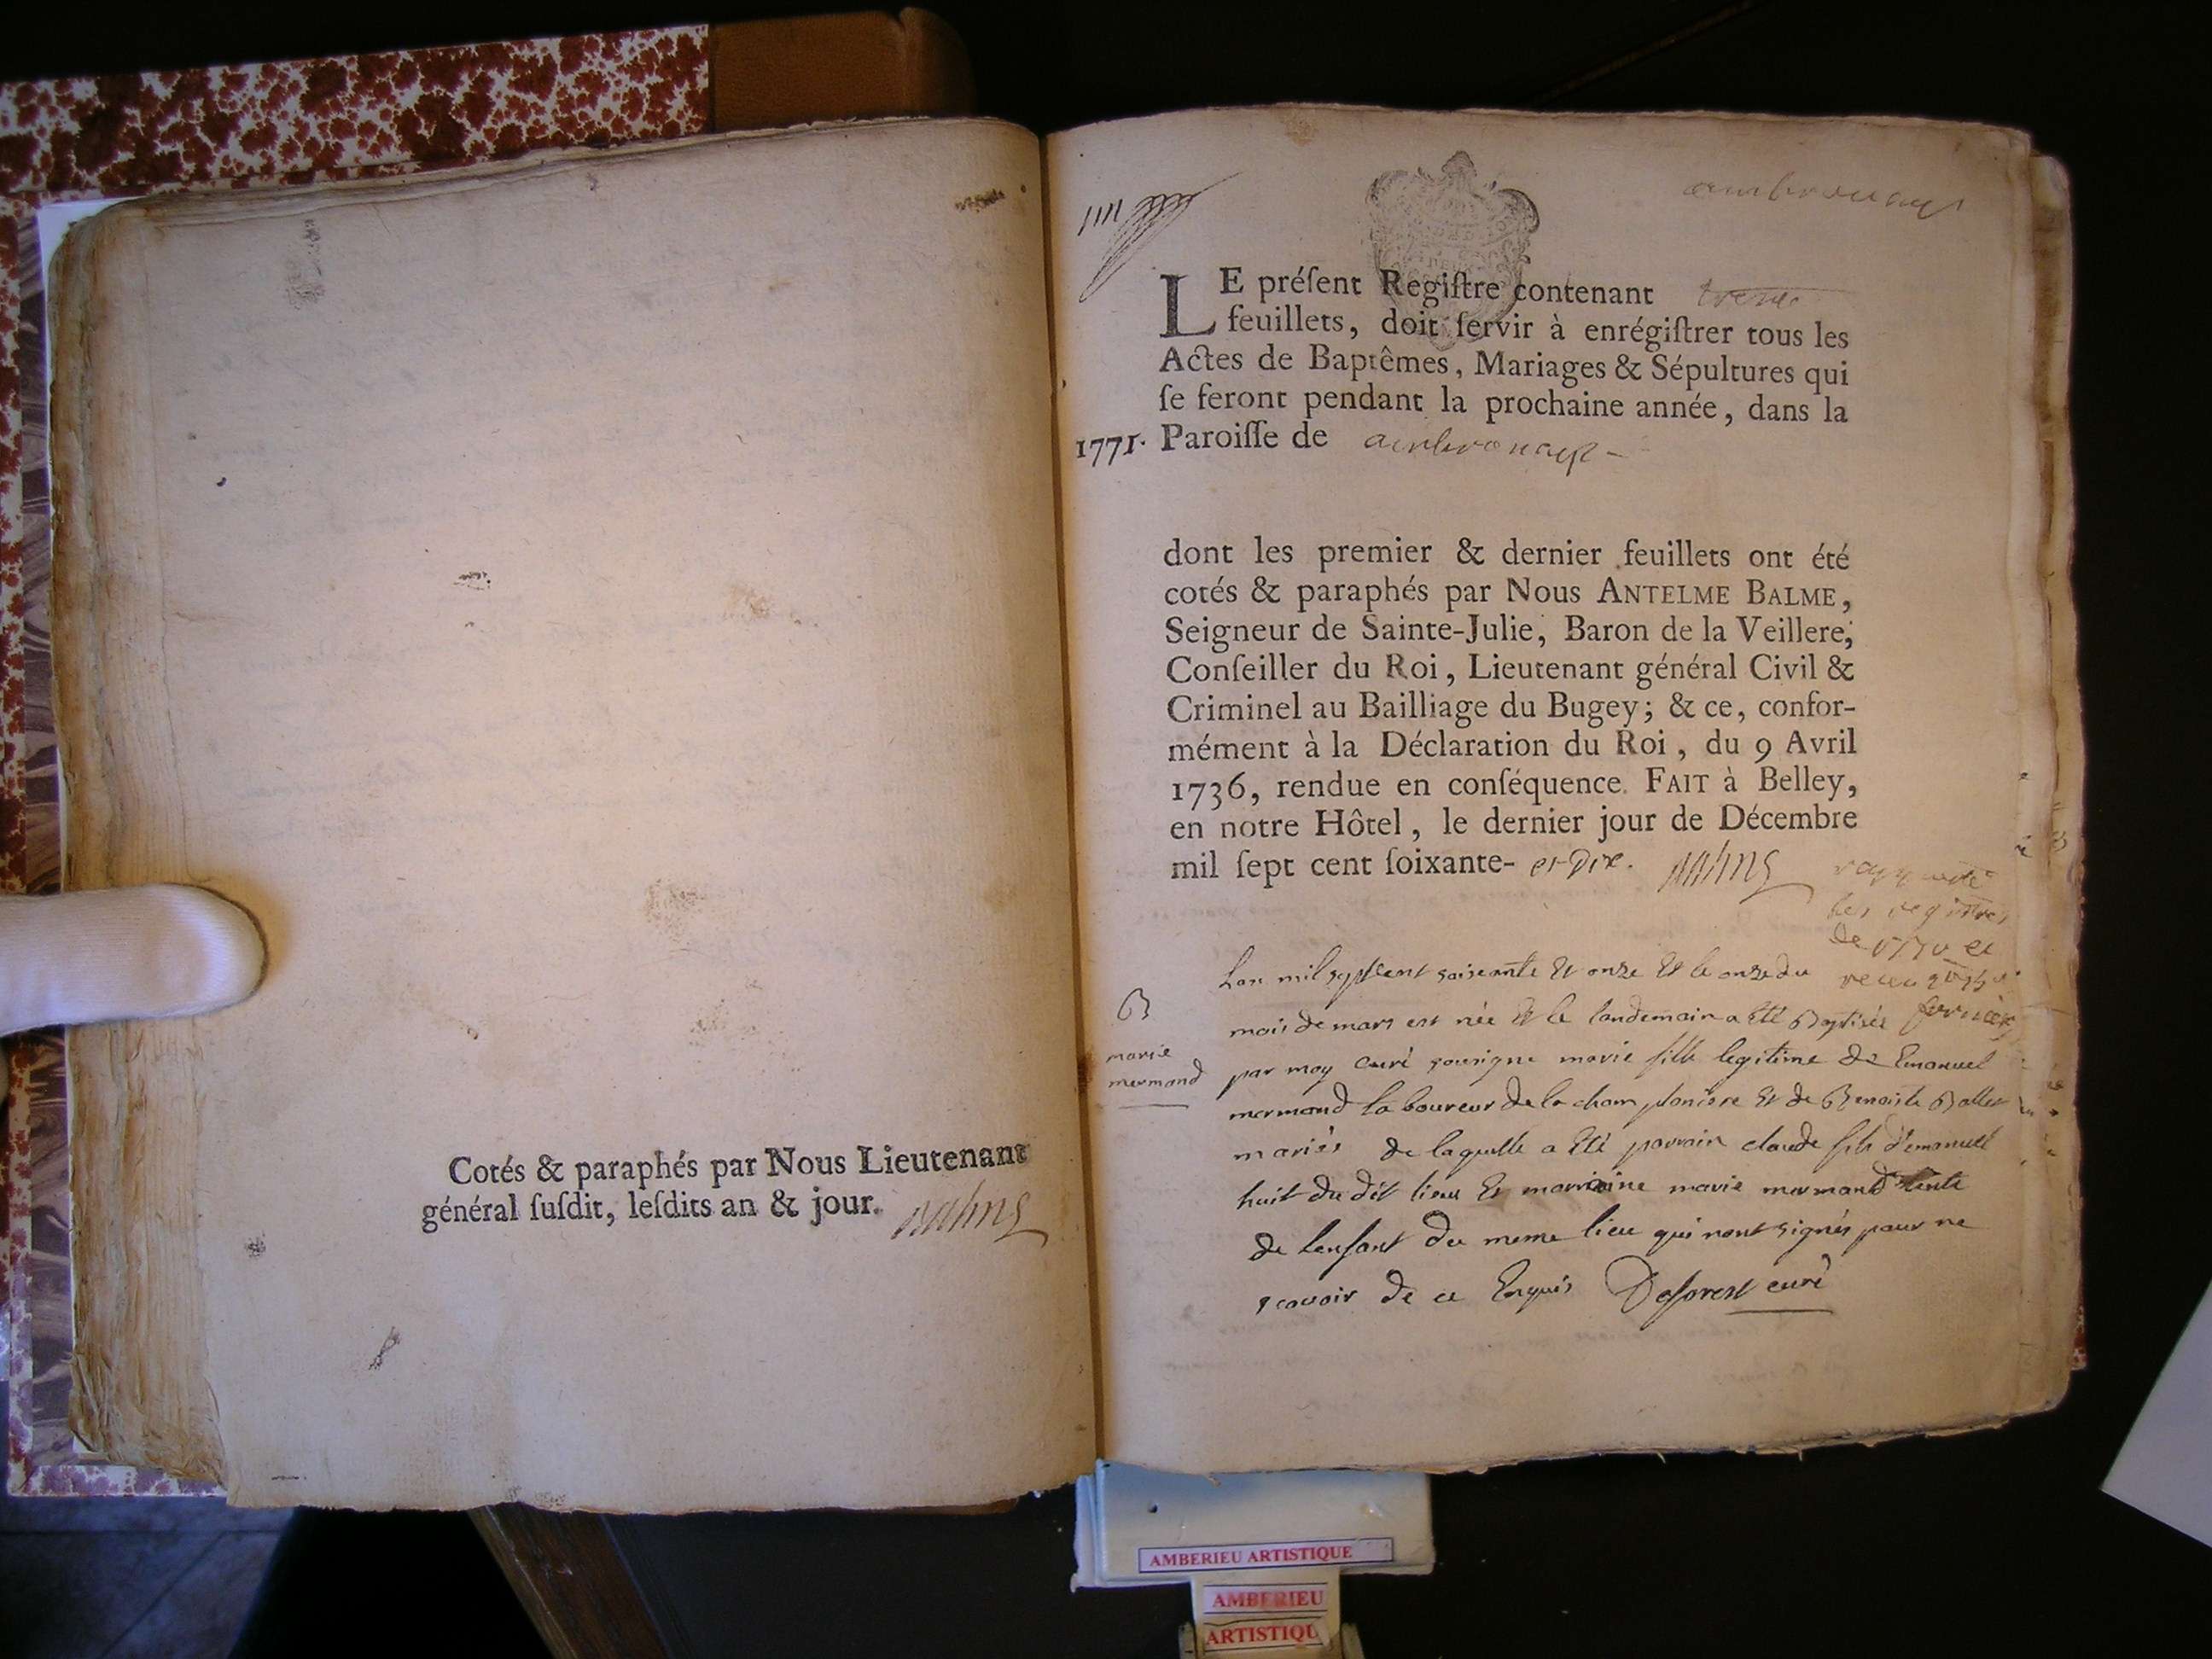 Cotés & paraphés par Nous Lieutenant
général ſuſdit, leſdits an & jour.
ambronay
LE préſent Regiſtre contenant
feuillets, doit ſervir à enrégiſtrer tous les
Actes de Baptêmes, Mariages & Sépultures qui
ſe feront pendant la prochaine année, dans la
1771. Paroiſſe de ambronay
dont les premier & dernier feuillets ont été
cotés & paraphés par Nous ANTELME BALME,
Seigneur de Sainte-Julie, Baron de la Veillere,
Conſeiller du Roi, Lieutenant général Civil &
Criminel au Bailliage du Bugey; & ce, confor-
mément à la Déclaration du Roi, du 9 Avril
1736, rendue en conſéquence. FAIT à Belley,
en notre Hôtel, le dernier jour de Décembre
mil ſept cent ſoixante- et dix.
les registres
de 1770 et
B
marie
mermand
Lan mil sept cent soixante et onze et le onze du
mois de mars est née et le landemain a été Baptisée
par moy curé sousigne marie fille legitime de Emanuel
mermand laboureur de la championiere et de Benoite Ballet
mariés de laquelle a été parrain claude fils d'emanuel
huit du dit lieu et marraine marie mermand tente
de lenfant du meme lieu qui n'ont signés pour ne
scavoir de ce Enquis Deforest curé
AMBERIEU ARTISTIQUE
AMBERIEU
ARTISTIQU